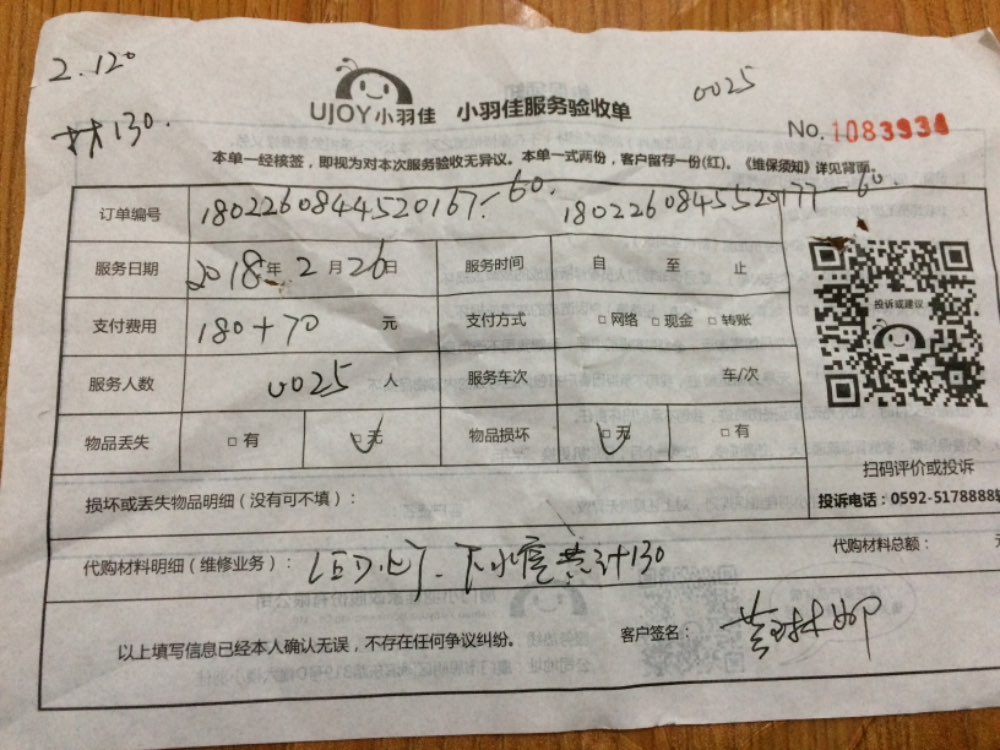 2.120
材130.
UJOY小羽佳 小羽佳服务验收单
0025
No.1083934
本单一经核签，即视为对本次服务验收无异议。本单一式两份，客户留存一份(红)。《维保须知》详见背面。
订单编号 1802260844520167-60. 1802260845520177-60.
服务日期 2018年2月26日 服务时间 自 至 止
支付费用 180+70 元 支付方式 □网络 □现金 □转账
投诉或建议
服务人数 0025 人 服务车次 车/次
物品丢失 □有 □无 物品损坏 □无 □有
扫码评价或投诉
损坏或丢失物品明细（没有可不填）：
投诉电话：0592-5178888
代购材料明细（维修业务）： LED灯、下水管共计130 代购材料总额：
以上填写信息已经本人确认无误，不存在任何争议纠纷。 客户签名：